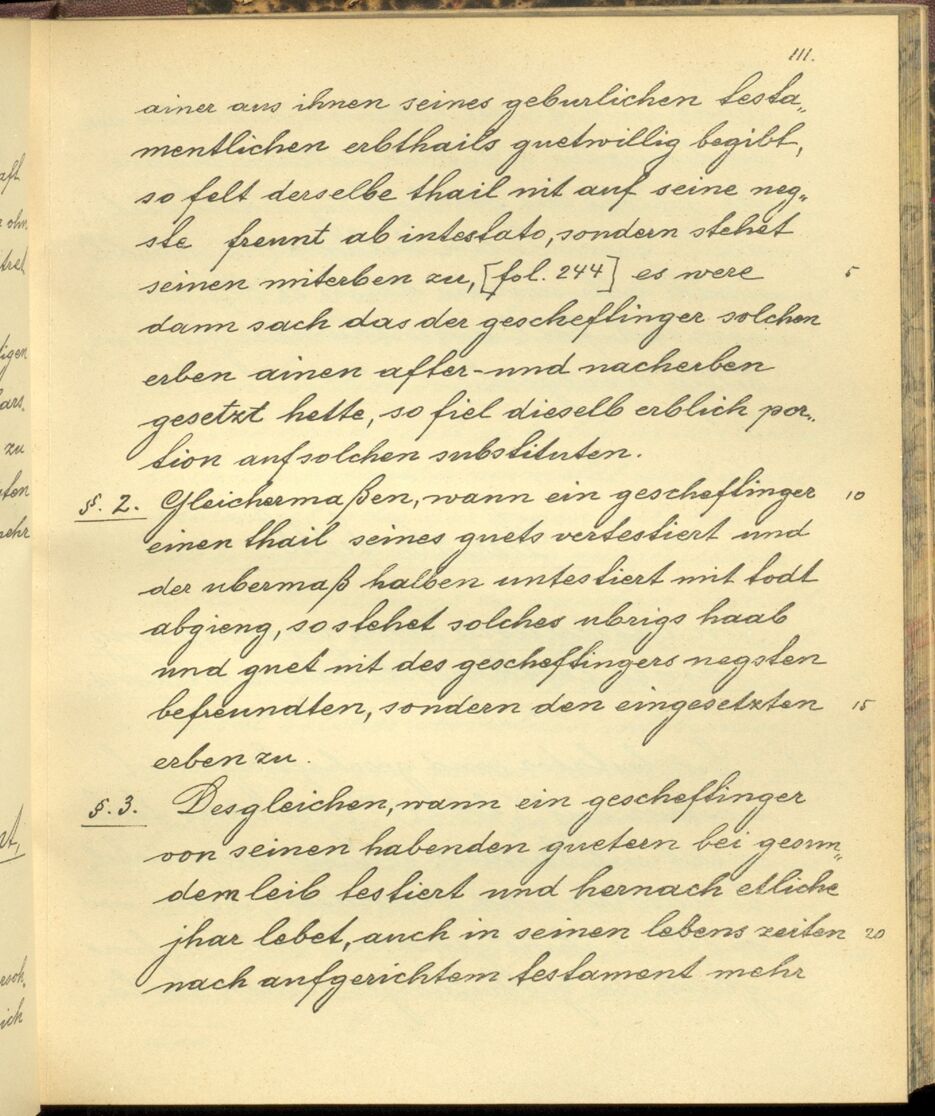 111.
ainer aus ihnen seines geburlichen testa„
mentlichen erbthails guetwillig begibt,
so felt derselbe thail nit auf seine neg„
ste freunt ab intestato, sondern stehet
seinen miterben zu, [fol. 244] es were 5
dann sach das der gescheftinger solchen
erben ainen after- und nacherben
gesetzt hette, so fiel dieselb erblich por„
tion auf solchen substituten.
§. 2. Gleichermaßen, wann ein gescheftinger 10
einen thail seines guets vertestiert und
der ubermaß halben untestiert mit todt
abgieng, so stehet solches ubrigs haab
und guet nit des gescheftingers negsten
befreundten, sondern den eingesetzten 15
erben zu.
§. 3. Desgleichen, wann ein gescheftinger
von seinen habenden guetern bei gesun„
dem leib testiert und hernach etliche
jhar lebet, auch in seinen lebens zeiten 20
nach aufgerichtem testament mehr